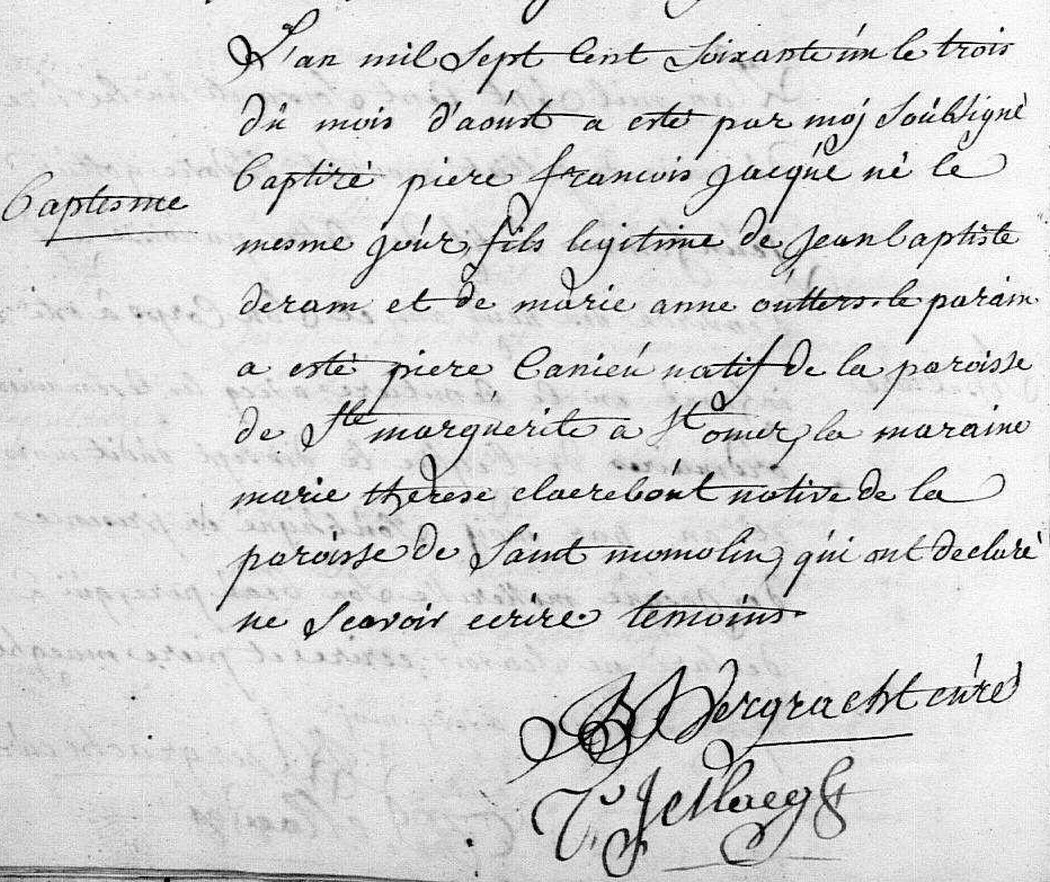 L'an mil sept cent soixante un le trois
du mois d'aoûst a esté par moj soûbsigné
Baptisme
baptizé piere francois jacque né le
mesme joûr, fils legitime de jean baptiste
deram et de marie anne oûtters. le parain
a esté piere Canieû natif de la paroisse
de Ste margúerite a St omer, la maraine
marie therese clacreboût native de la
paroisse de Saint momolin, qui ont declaré
ne scavoir ecrire temoins.
Vergracht cúré